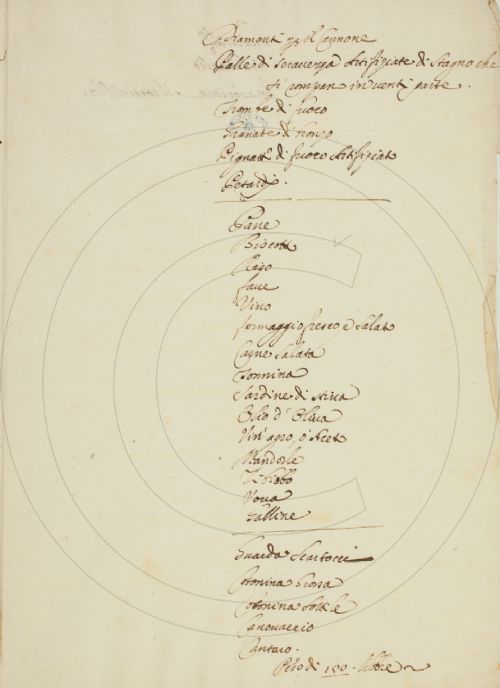 di Cannone
Palle di artifiziate di Stagno che
si rompan in venti parte.
Trombe di fuoco
Granate di bronzo
Pignatte di fuoco Artifiziato
Petardi.
Pane
Biscotti
Riso
fave
Vino
formaggio fresco e Salato
Carne Salata
Tonnina
Sardine di stiva
Olio d'Oliva
Vin'agro, o' Aceto
Mandorle
Zibibbo
Vova
Galline
Guarda Scartocci
Cotonina Grossa
Cotonina sottile
Canovaccio
Cantaro.
Peso di 150. libbre